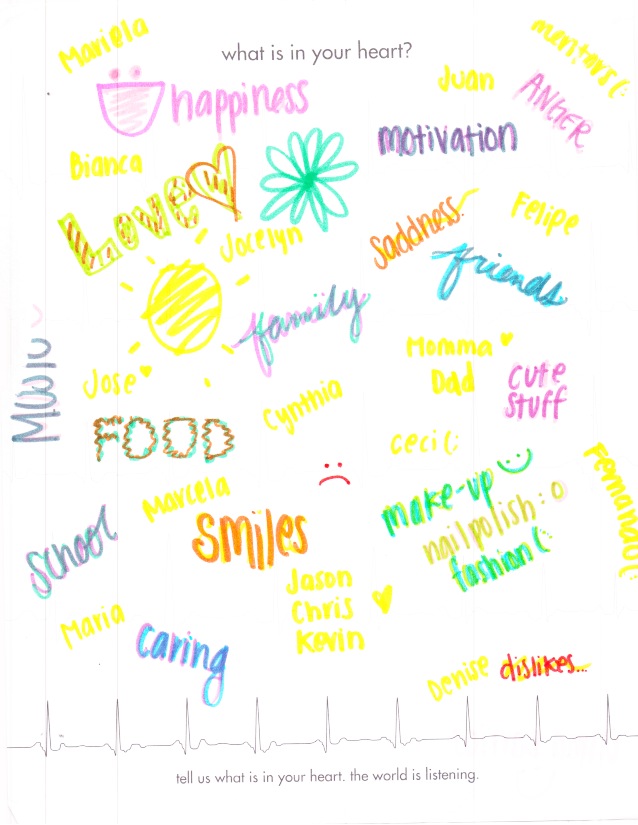 Mariela
what is in your heart?
mentors (:
happiness
Juan
ANGER
motivation
Bianca
Love
Jocelyn
Saddness
Felipe
friends
family
Music
Momma
Dad
cute
stuff
Jose
Cynthia
FOOD
ceci (:
Marcela
smiles
make-up
nailpolish :o
fashion (:
school
Jason
Chris
Kevin
Maria
caring
Denise
dislikes...
tell us what is in your heart. the world is listening.